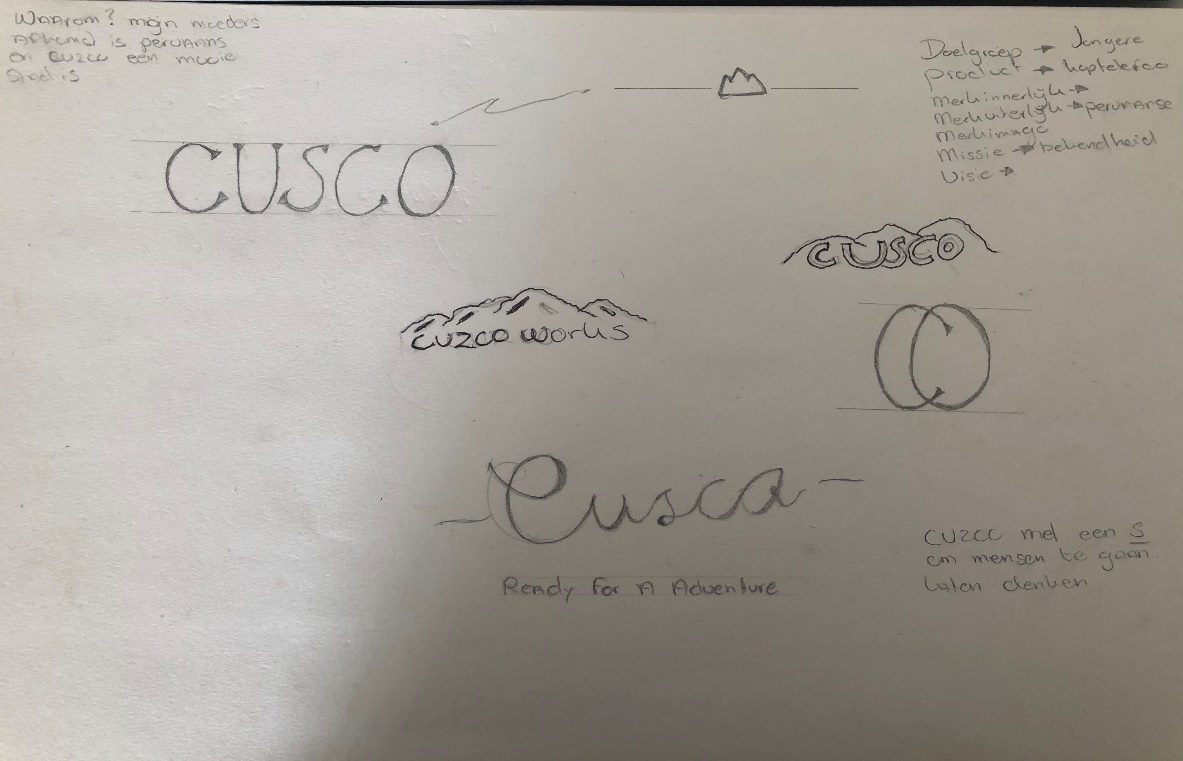 Waarom? mijn moeders
afkomst is peruaans
en cuzco een mooie
stad is
Doelgroep → Jongere
product →
merkinnerlijk →
merkuiterlijk → peruaanse
merkimago
Missie → bekendheid
Visie →
CUSCO
CUSCO
CUZCO WORKS
CO
Cusco
Ready For A Adventure
CUZCO met een S
om mensen te gaan
laten denken